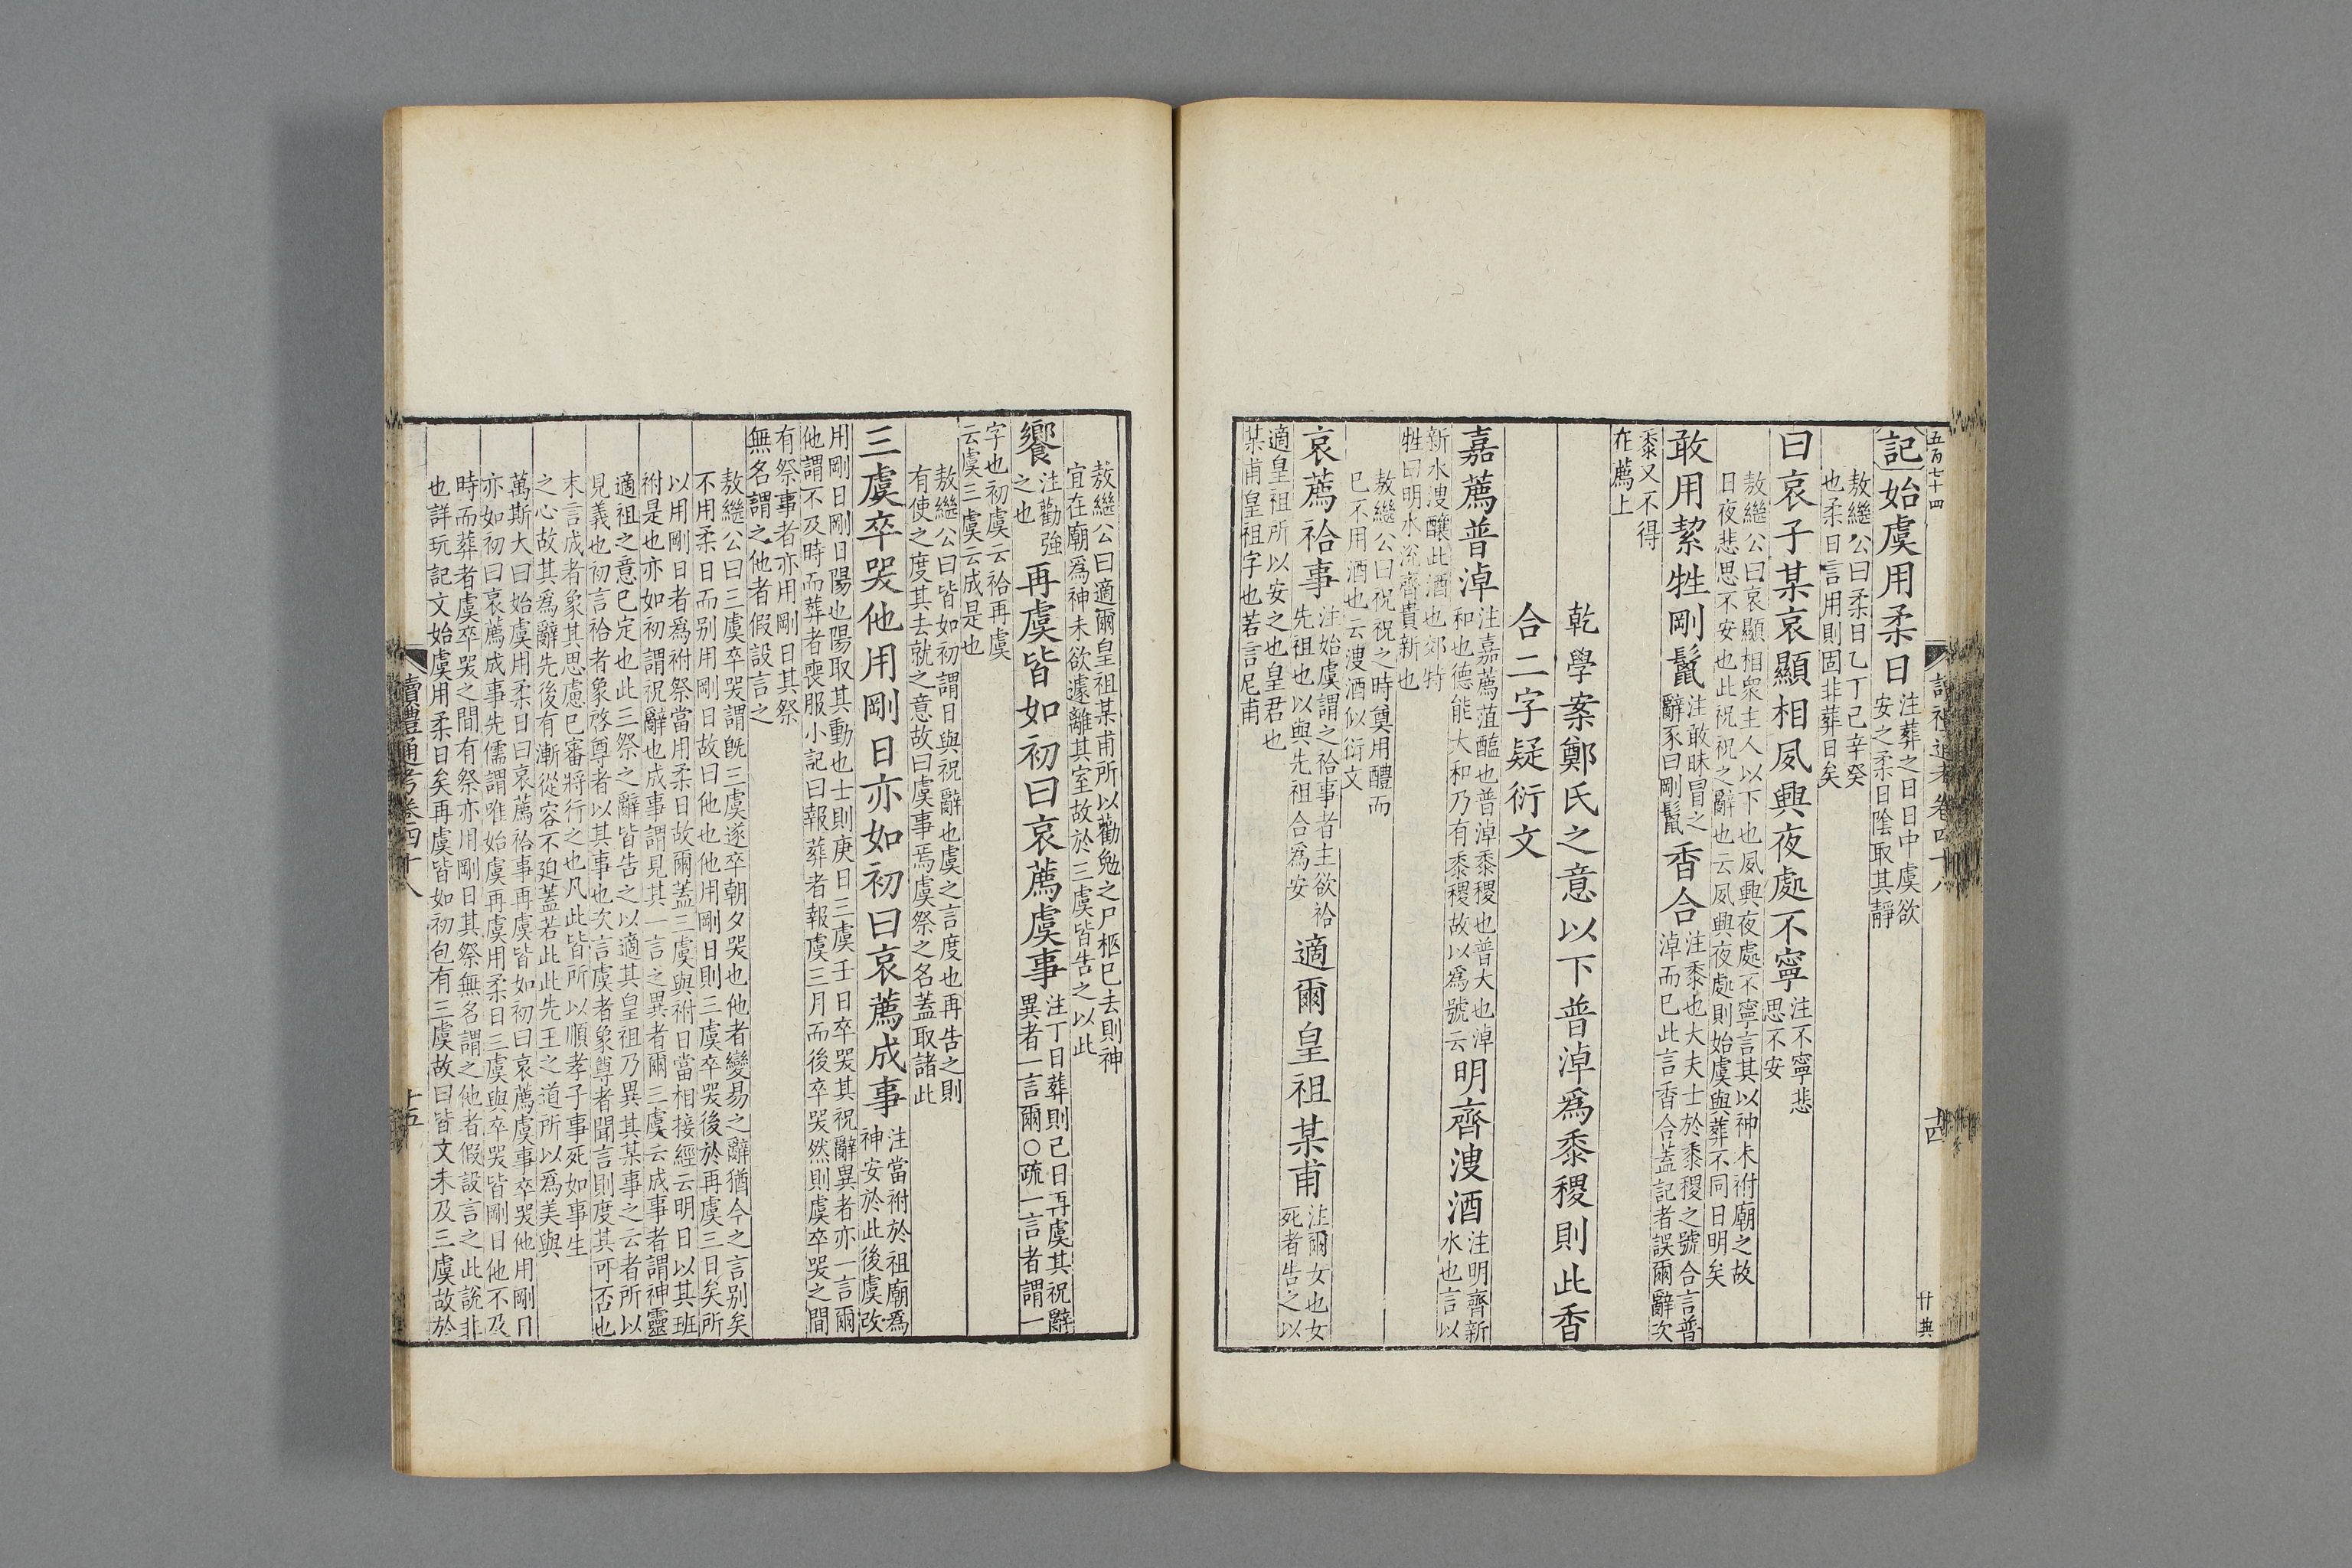 五百七十四
讀禮通考卷四十八
十四
廿典
記始虞用柔日注葬之日日中虞欲安之柔日陰取其靜
敖繼公曰柔日乙丁己辛癸也柔日言用則固非葬日矣
曰哀子某哀顯相夙興夜處不寧注不寧悲思不安
敖繼公曰哀顯相衆主人以下也夙興夜處不寧言其以神未祔廟之故日夜悲思不安也此祝祝之辭也云夙興夜處則始虞與葬不同日明矣
敢用絜牲剛鬣注敢昧冒之辭豕曰剛鬣香合注黍也大夫士於黍稷之號合言普淖而已此言香合蓋記者誤爾辭次黍又不得在薦上
乾學案鄭氏之意以下普淖爲黍稷則此香
合二字疑衍文
嘉薦普淖注嘉薦菹醢也普淖黍稷也普大也淖和也德能大和乃有黍稷故以爲號云明齊溲酒注明齊新水也言以新水溲釀此酒也郊特牲曰明水涗齊貴新也
敖繼公曰祝祝之時奠用醴而已不用酒也云溲酒似衍文
哀薦祫事注始虞謂之祫事者主欲祫先祖也以與先祖合爲安適爾皇祖某甫注爾女也女死者告之以適皇祖所以安之也皇君也某甫皇祖字也若言尼甫
敖繼公曰適爾皇祖某甫所以勸勉之尸柩已去則神宜在廟爲神未欲遽離其室故於三虞皆告之以此
饗注勸強之也再虞皆如初曰哀薦虞事注丁日葬則己日再虞其祝辭異者一言爾○疏一言者謂一字也初虞云祫再虞云虞三虞云成是也
敖繼公曰皆如初謂日與祝辭也虞之言度也再告之則有使之度其去就之意故曰虞事焉虞祭之名蓋取諸此
三虞卒哭他用剛日亦如初曰哀薦成事注當祔於祖廟爲神安於此後虞改用剛日剛日陽也陽取其動也士則庚日三虞壬日卒哭其祝辭異者亦一言爾他謂不及時而葬者喪服小記曰報葬者報虞三月而後卒哭然則虞卒哭之間有祭事者亦用剛日其祭無名謂之他者假設言之
敖繼公曰三虞卒哭謂旣三虞遂卒朝夕哭也他者變易之辭猶今之言別矣不用柔日而別用剛日故曰他也他用剛日則三虞卒哭後於再虞三日矣所以用剛日者爲祔祭當用柔日故爾蓋三虞與祔日當相接經云明日以其班祔是也亦如初謂祝辭也成事謂見其一言之異者爾三虞云成事者謂神靈適祖之意已定也此三祭之辭皆告之以適其皇祖乃異其某事之云者所以見義也初言祫者象啓尊者以其事也次言虞者象尊者聞言則度其可否也末言成者象其思慮已審將行之也凡此皆所以順孝子事死如事生之心故其爲辭先後有漸從容不迫蓋若此此先王之道所以爲美與
萬斯大曰始虞用柔日曰哀薦祫事再虞皆如初曰哀薦虞事卒哭他用剛日亦如初曰哀薦成事先儒謂唯始虞再虞用柔日三虞與卒哭皆剛日他不及時而葬者虞卒哭之間有祭亦用剛日其祭無名謂之他者假設言之此說非也詳玩記文始虞用柔日矣再虞皆如初包有三虞故曰皆文未及三虞故於
讀禮通考卷四十八
十五